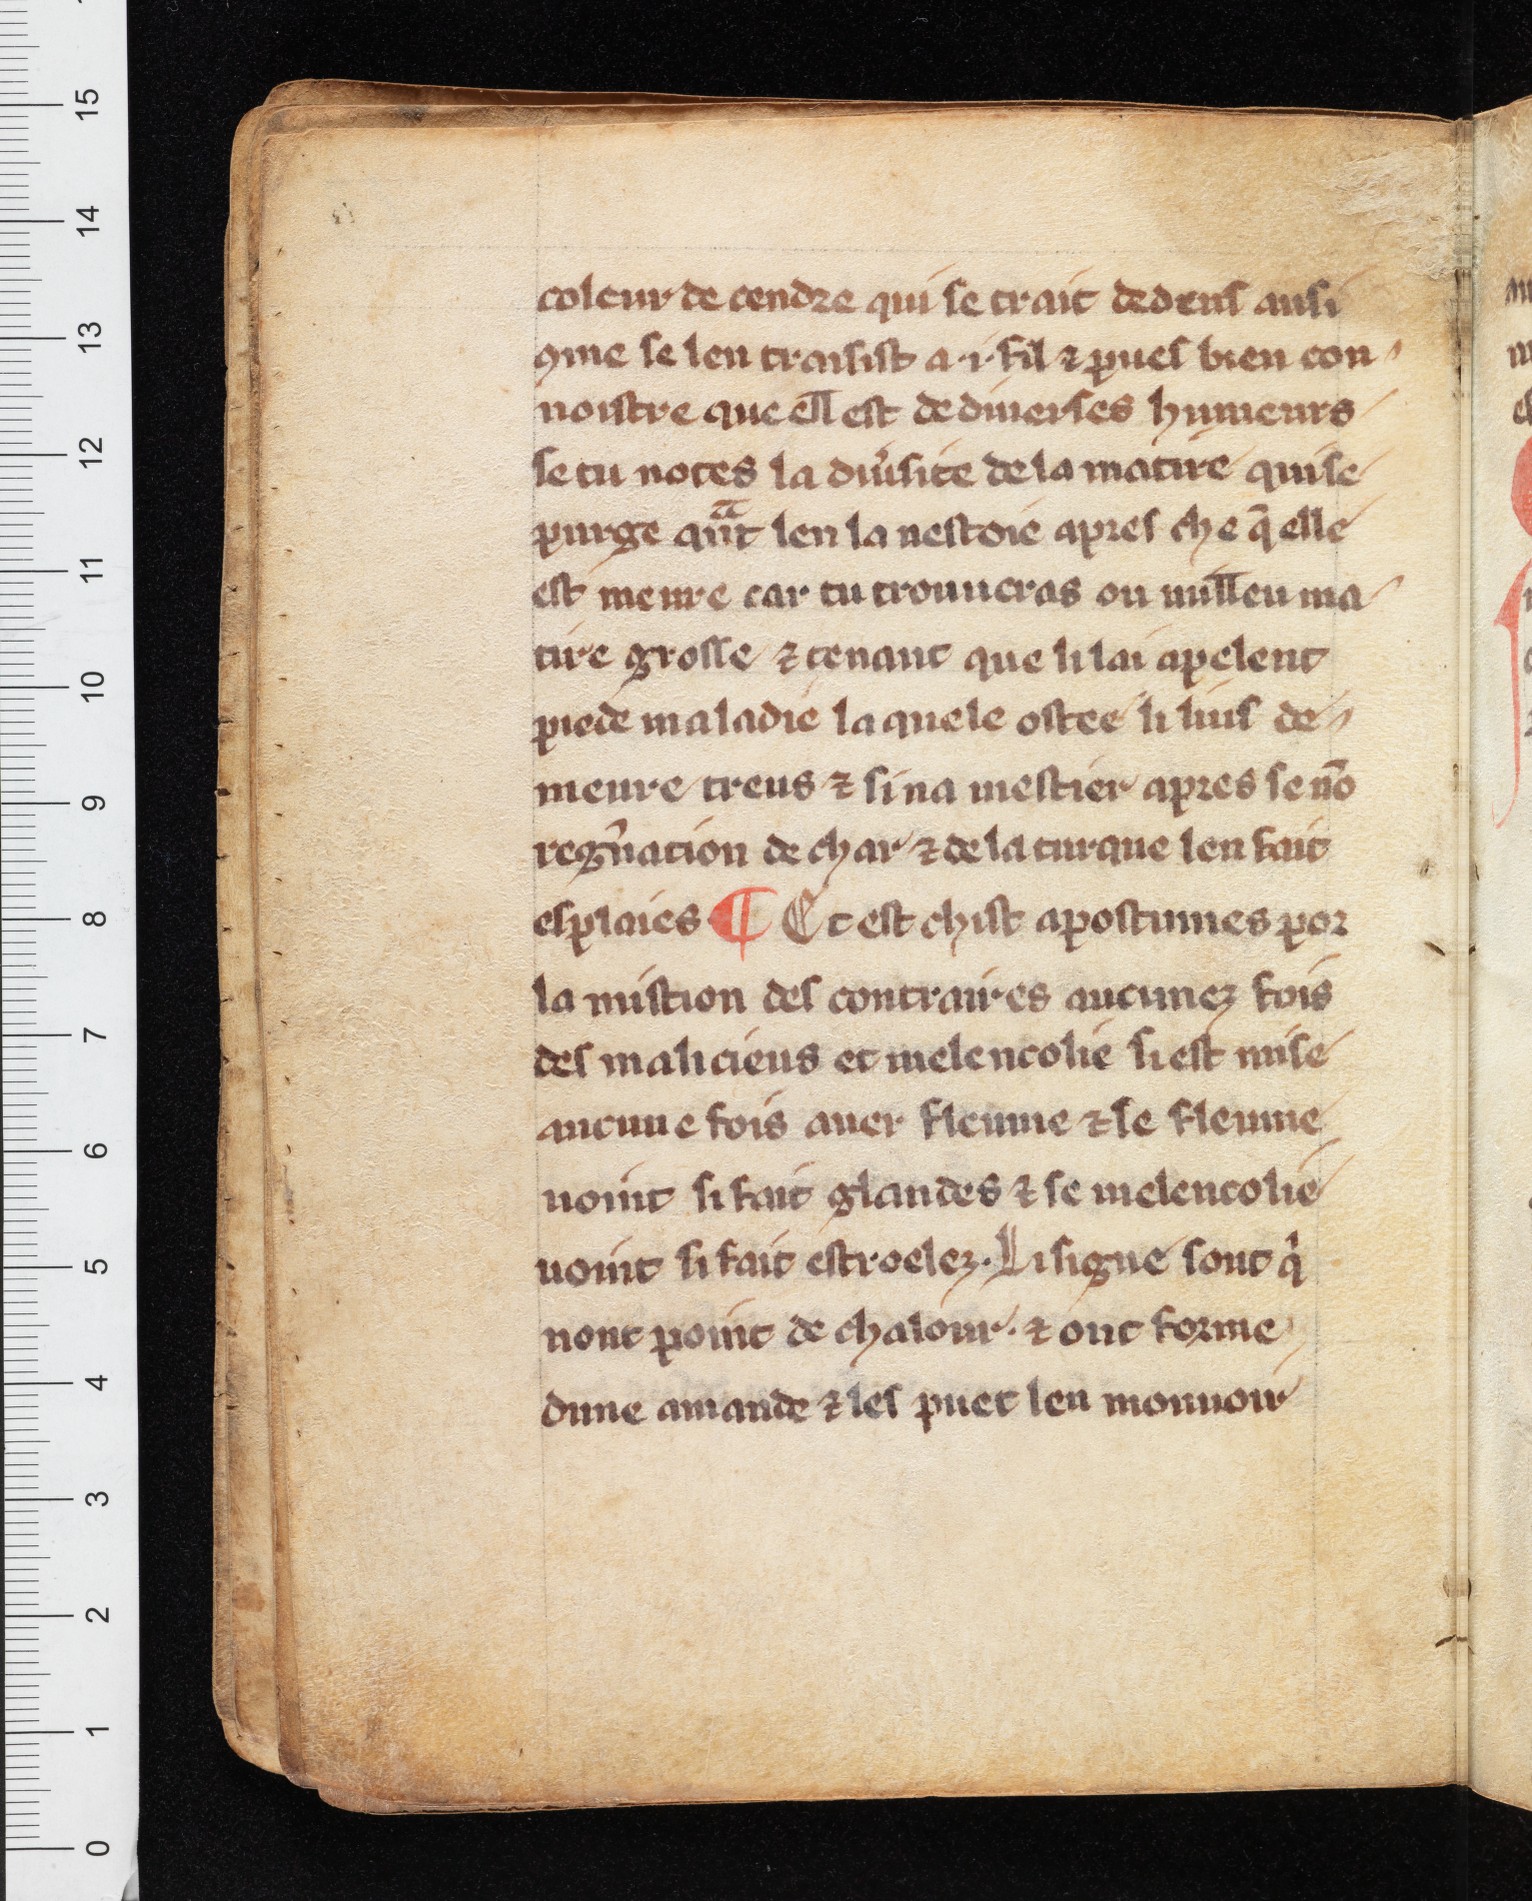 coleur de cendre qui se trait dedens ausi
ꝯme se len traisist a ·i· fil ⁊ pues bien con
noistre que ell̅ est de diuerses humeurs
se tu notes la diu᷑site de la matire qui se
purge qͣnt len la nestoie apres che q̄ elle
est meure car tu trouueras ou mill̅eu ma
tire grosse ⁊ tenant que li lai apelent
pie de maladie la quele ostee li lius de
meure treus ⁊ si na mestier apres se nō
regn᷑ation de char ⁊ de la turque len fait
es plaies ¶ Et est chist apostumes por
la mistion des contraires aucunez fois
des malicieus et melencolie si est mise
aucune fois auer fleume ⁊ se fleume
uoint si fait glandes ⁊ se melencolie
uoint si fait estroelez. Li signe sont qͥ
nont point de chalour. ⁊ ont forme
dune amande ⁊ les puet len mouuoir
15
14
13
12
11
10
9
8
7
6
5
4
3
2
1
0